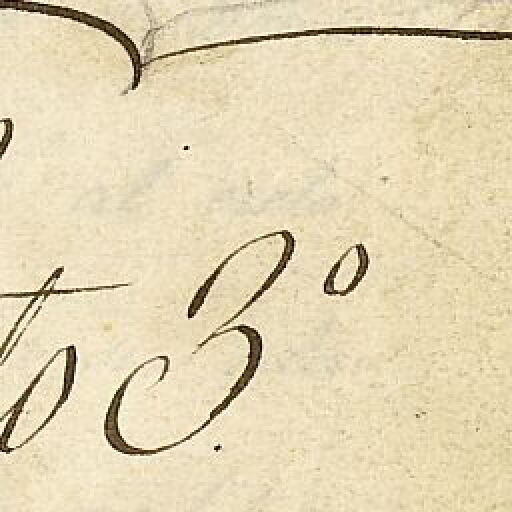 to 3.º